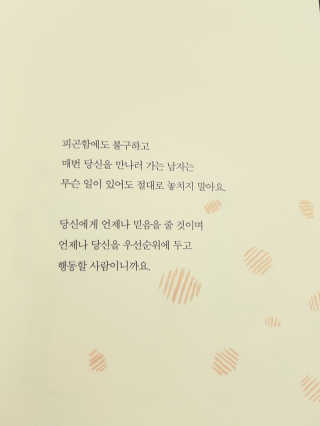 피곤함에도 불구하고
매번 당신을 만나러 가는 남자는
무슨 일이 있어도 절대로 놓치지 말아요.
당신에게 언제나 믿음을 줄 것이며
언제나 당신을 우선순위에 두고
행동할 사람이니까요.